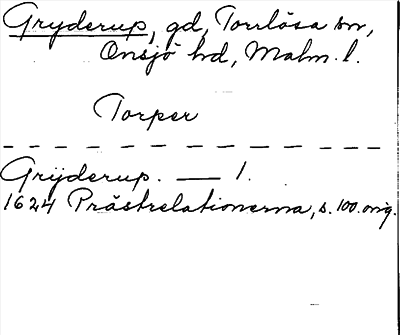 Gryderup, gd, Torrlösa sn,
Onsjö hd, Malm. l.
Torper
Grÿderup. — 1.
1624 Prästrelationerna, s. 100. orig.